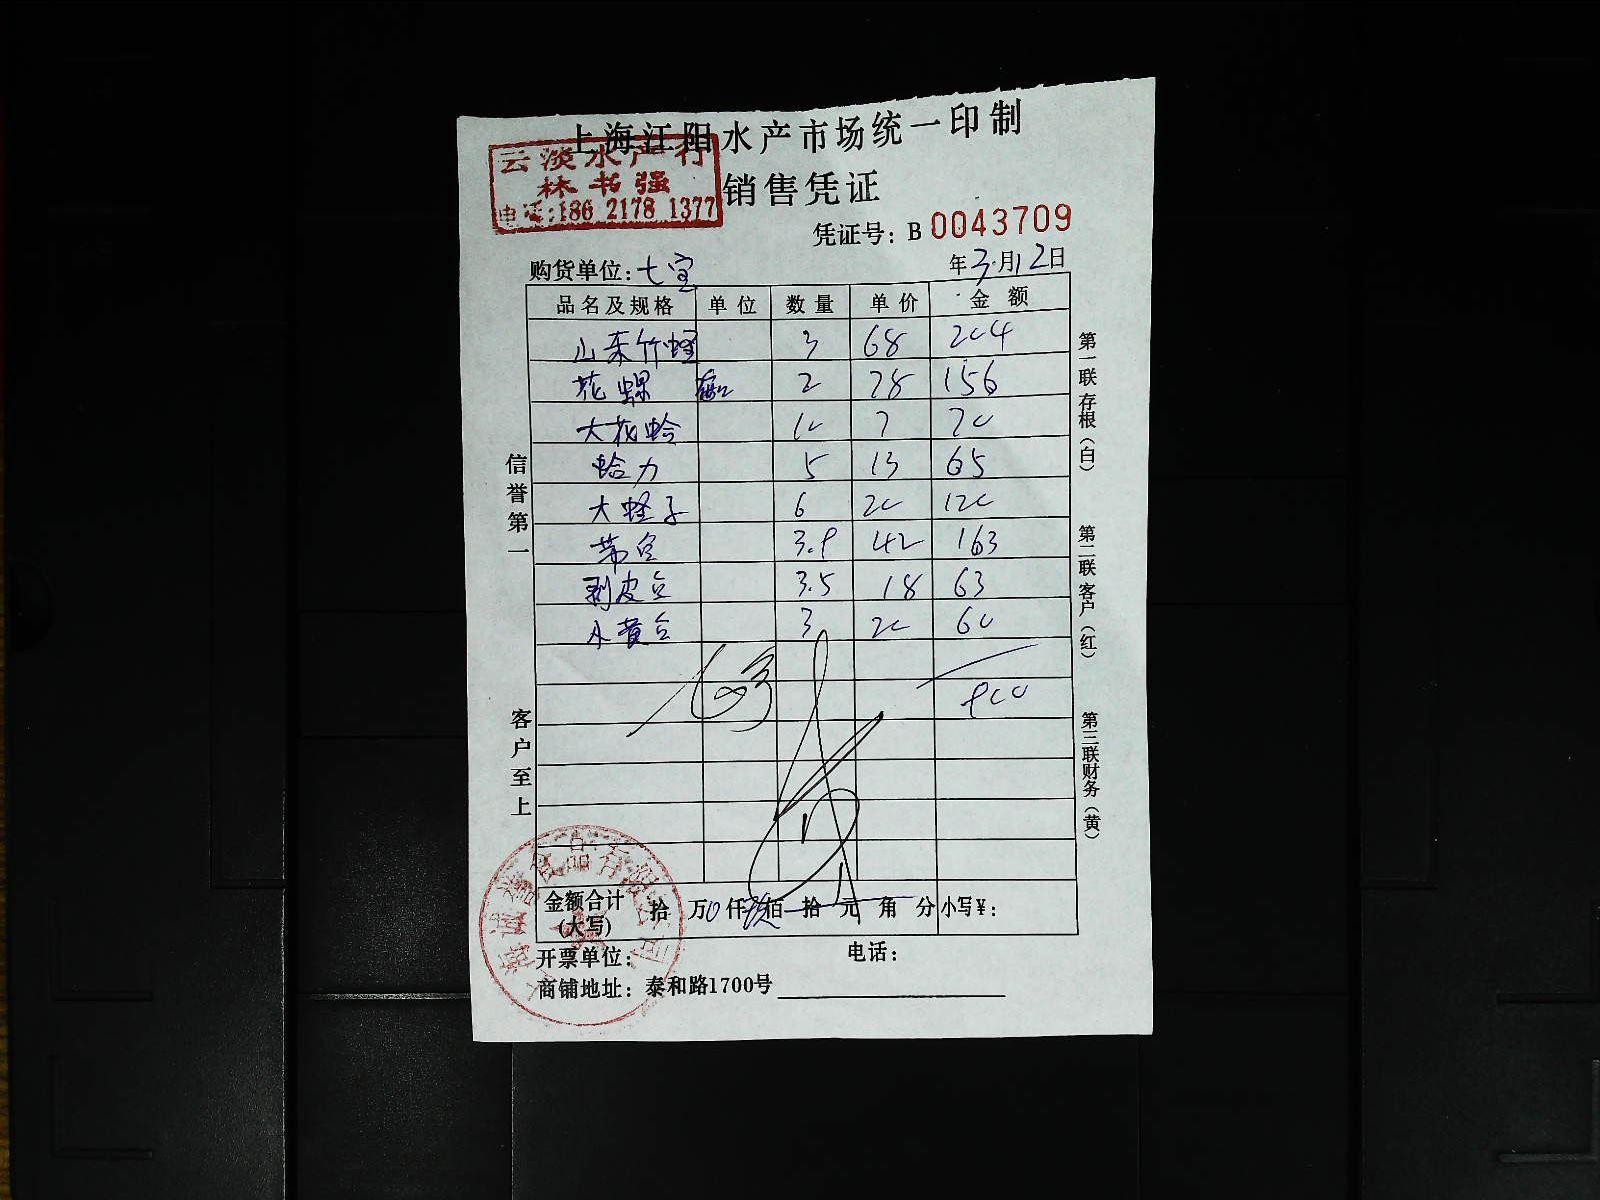 上海江阳水产市场统一印制
云淡水产行
林书强
电话:186 2178 1377
销售凭证
凭证号: B 0043709
购货单位: 七宝 年3月12日
品名及规格 单位 数量 单价 金额
山东竹蛏 3 68 204
花螺 2 78 156
大花蛤 10 7 70
蛤力 5 13 65
大蛏子 6 20 120
3.9 42 163
剥皮豆 3.5 18 63
小黄豆 3 20 60
900
信誉第一
客户至上
第一联存根(白)
第二联客户(红)
第三联财务(黄)
金额合计(大写) 拾 万0仟玖佰 拾 元 角 分 小写¥:
开票单位: 电话:
商铺地址: 泰和路1700号